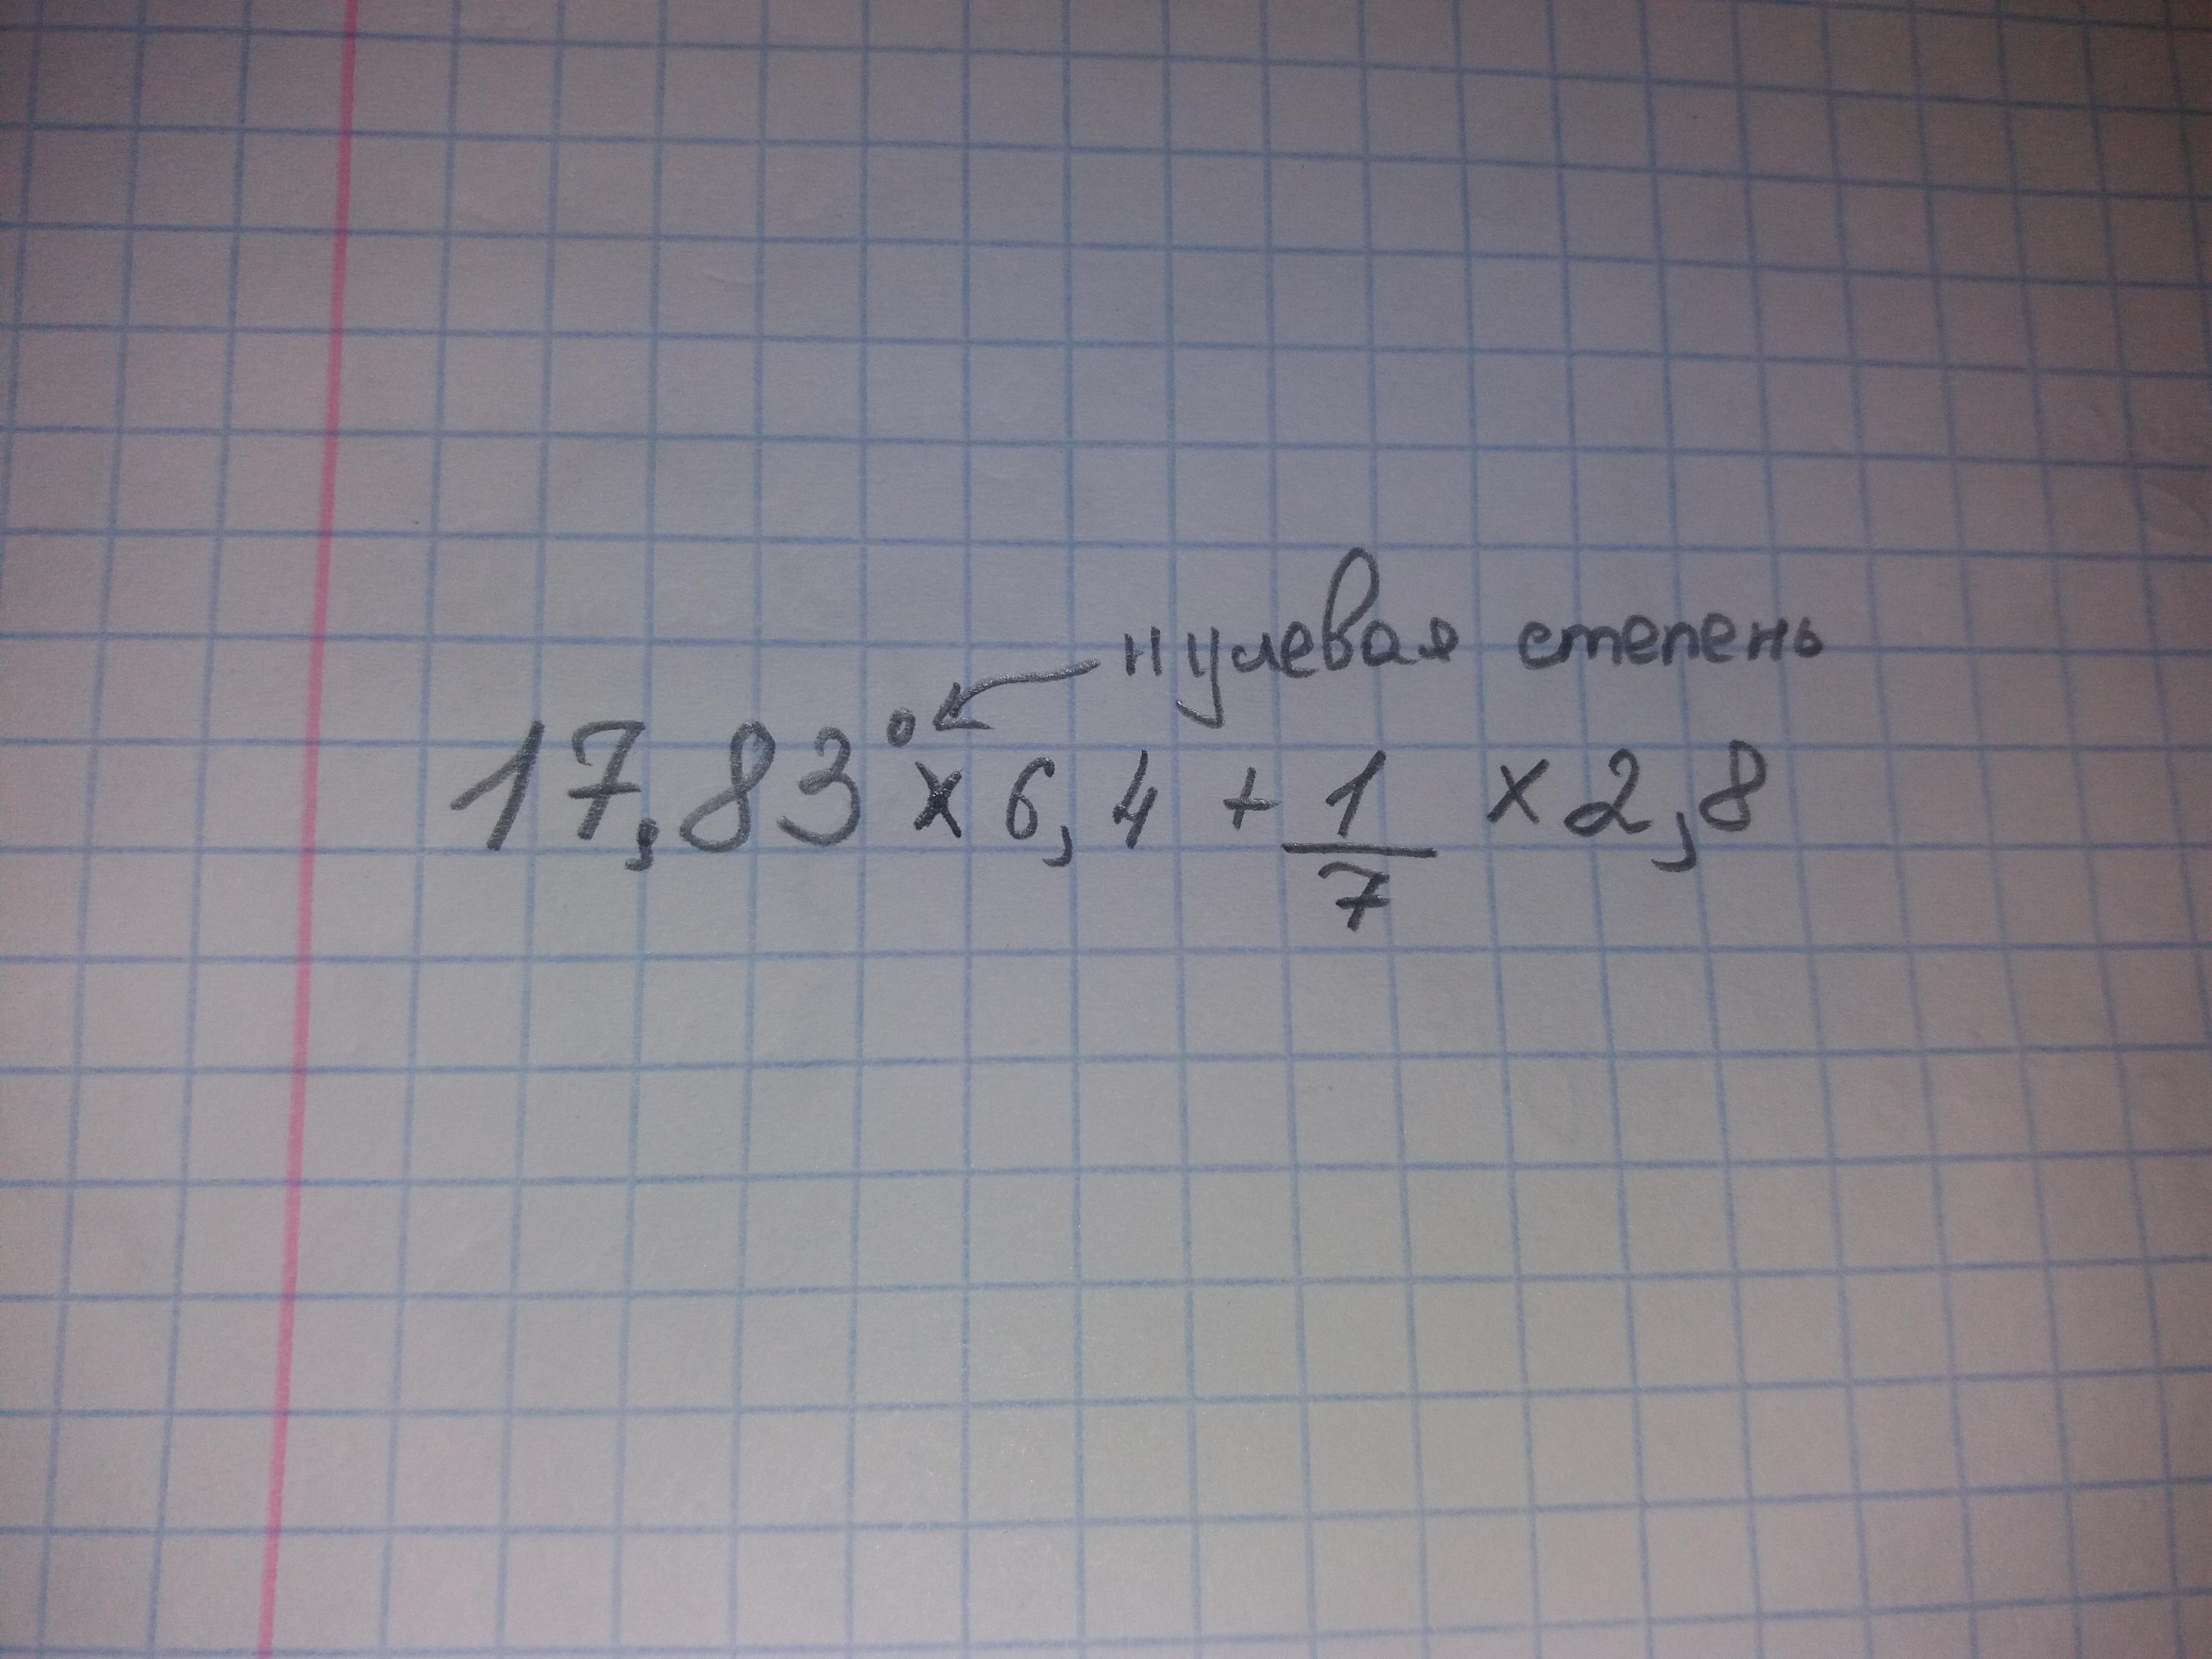 нулевая степень
17,83⁰ × 6,4 + 1/7 × 2,8